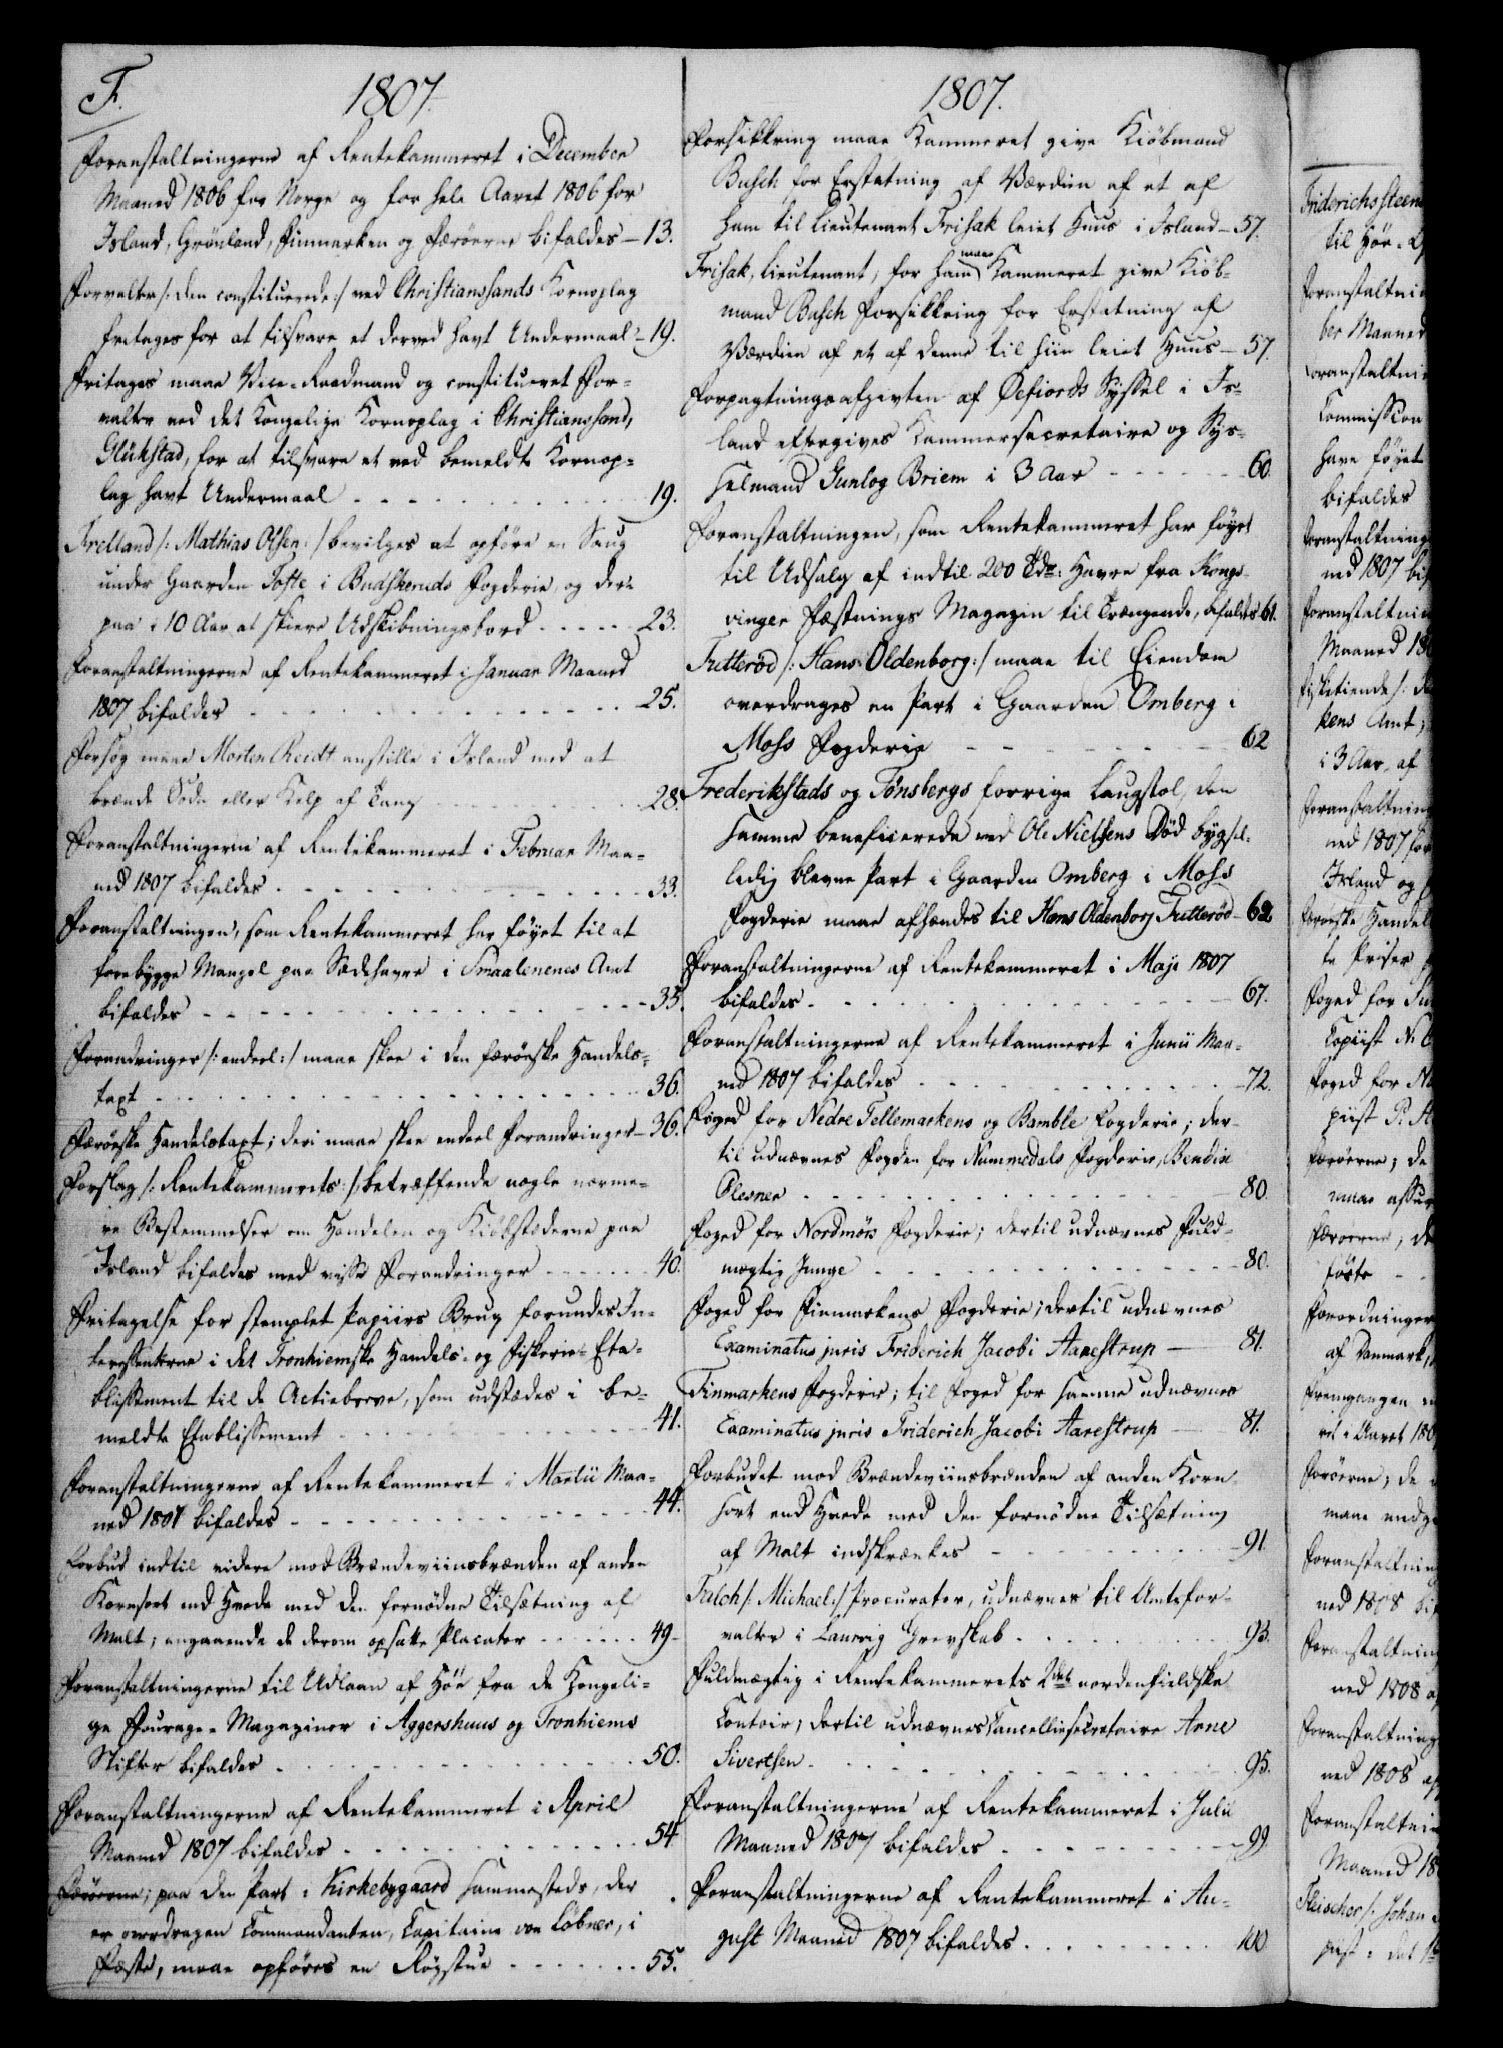 F.
1807.
Foranstaltningerne af Rentekammeret i December
Maaned 1806 for Norge og for hele Aaret 1806 for
Island, Grönland, Finmarken og Færöerne bifaldes — 13.
Forvalter /: den constituerede :/ ved Christianssands Kornoplag
fritages for at tilsvare et derved havt Undermaal — 19.
Fritages maae Vice-Raadmand og constitueret For-
valter ved det Kongelige Kornoplag i Christianssand,
Glükstad, for at tilsvare et ved bemeldte Kornop-
lag havt Undermaal - - - 19.
Frelland /: Mathias Olsen :/ bevilges at opföre en Saug
under Gaarden Tofte i Budskeruds Fogderie, og der-
paa i 10 Aar at skiere Udskibningsbord - - - 23.
Foranstaltningerne af Rentekammeret i Januar Maaned
1807 bifaldes - - - 25.
Forsög maae Morten Reidt anstille i Island med at
brænde Soda eller Kelp af Tang - - - 28.
Foranstaltningerne af Rentekammeret i Februar Maa-
ned 1807 bifaldes - - - 33.
Foranstaltningen, som Rentekammeret har föyet til at
forebygge Mangel paa Sædehavre i Smaalenenes Amt
bifaldes - - - 35.
Forandringer /: endeel :/ maae skee i den færöeske Handels-
taxt - - - 36.
Færöeske Handelstaxt; deri maae skee endeel Forandringer — 36.
Forslag /: Rentekammerets :/ betræffende nogle nærme-
re Bestemmelser om Handelen og Kiöbstæderne paa
Island bifaldes med visse Forandringer - - - 40.
Fritagelse for stemplet Papiirs Brug forundes In-
teressenterne i det Tronhiemske Handels- og Fiskerie-Eta-
blissement til de Actiebreve, som udstædes i be-
meldte Etablissement - - - 41.
Foranstaltningerne af Rentekammeret i Martii Maa-
ned 1807 bifaldes - - - 44.
Forbud indtil videre mod Brændeviinsbrænden af anden
Kornsort end Hvede med den fornödne Tilsætning af
Malt; angaaende de derom opsatte Placater - - - 49.
Foranstaltningerne til Udlaan af Höe fra de Kongeli-
ge Fourage-Magaziner i Aggershuus og Tronhiems
Stifter bifaldes - - - 50.
Foranstaltningerne af Rentekammeret i April
Maaned 1807 bifaldes - - - 54.
Færöerne; paa den Part i Kirkebygaard sammesteds, der
er overdragen Commandanten, Capitaine von Löbner, i
Fæste, maae opföres en Rögstue - - - 55.
1807.
Forsikkring maae Kammeret give Kiöbmand
Busch for Erstatning af Værdien af et af
ham til Lieutenant Frisak leiet Huus i Island — 57.
Frisak, Lieutenant, for ham maae Kammeret give Kiöb-
mand Busch Forsikkring for Erstatning af
Værdien af et af denne til hiin leiet Huus — 57.
Forpagtningsafgivten af Öefiords Syssel i Is-
land eftergives Kammersecretaire og Sys-
selmand Gunlog Briem i 3 Aar - - - 60.
Foranstaltningen, som Rentekammeret har föyet
til Udsalg af indtil 200 Tdr: Havre fra Kongs-
vinger Fæstnings Magazin til Trængende, bifaldes 61.
Tutteröd /: Hans Oldenborg :/ maae til Eiendom
overdrages en Part i Gaarden Omberg i
Moss Fogderie - - - 62
Frederikstads og Tönsbergs forrige Laugstol, den
samme beneficerede ved Ole Nielsens Död bygsel-
ledig blevne Part i Gaarden Omberg i Moss
Fogderie maae afhændes til Hans Oldenborg Tutteröd — 62
Foranstaltningerne af Rentekammeret i Maji 1807
bifaldes - - - 67.
Foranstaltningerne af Rentekammeret i Junii Maa-
ned 1807 bifaldes - - - 72.
Foged for Nedre Tellemarkens og Bamble Fogderie; der-
til udnævnes Fogden for Nummedals Fogderie, Bendix
Plesner - - - 80.
Foged for Nordmörs Fogderie; dertil udnævnes Fuld-
mægtig Junge - - - 80.
Foged for Finmarkens Fogderie; dertil udnævnes
Examinatus juris Friderich Jacobi Aarestrup — 81.
Finmarkens Fogderie; til Foged for samme udnævnes
Examinatus juris Friderich Jacobi Aarestrup — 81.
Forbudet mod Brændeviinsbrænden af anden Korn-
sort end Hvede med den fornödne Tilsætning
af Malt indskrænkes - - - 91.
Falch /: Michael :/ Procurator, udnævnes til Amtsfor-
valter i Laurvig Grevskab - - - 93.
Fuldmægtig i Rentekammerets 2det nordenfieldske
Contoir; dertil udnævnes Cancelliesecretaire Arne
Sivertsen - - - 95.
Foranstaltningerne af Rentekammeret i Julii
Maaned 1807 bifaldes - - - 99
Foranstaltningerne af Rentekammeret i Au-
gust Maaned 1807 bifaldes - - - 100
Friderichssteen
til Höe-
Foranstaltnin
ber Maaned
Foranstaltnin
Commission
have föyet
bifaldes
Foranstaltning
ned 1807 bif
Foranstaltnin
Maaned 180
Fisketiende /:
kens Amt;
i 3 Aar, af
Foranstaltning
ned 1807 for
Island og
Færöeske Handel
te Priser
Foged for
Copiist N:
Foged for N
piist P. A
Færöerne; de
maae
Færöerne; de
förte
Forordninger
af Danmark,
Fremgangen
ret i Aaret 180
Færöerne; de
maae
Foranstaltning
ned 1808 bif
Foranstaltning
ned 1808
Foranstaltning
ned 1808
Foranstaltnin
Maaned 18
Fleischer /: Johan
piist i det 1ste